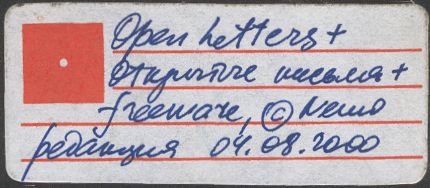 Open Letters +
Открытые письма +
freeware, © Nemo
редакция 04.08.2000